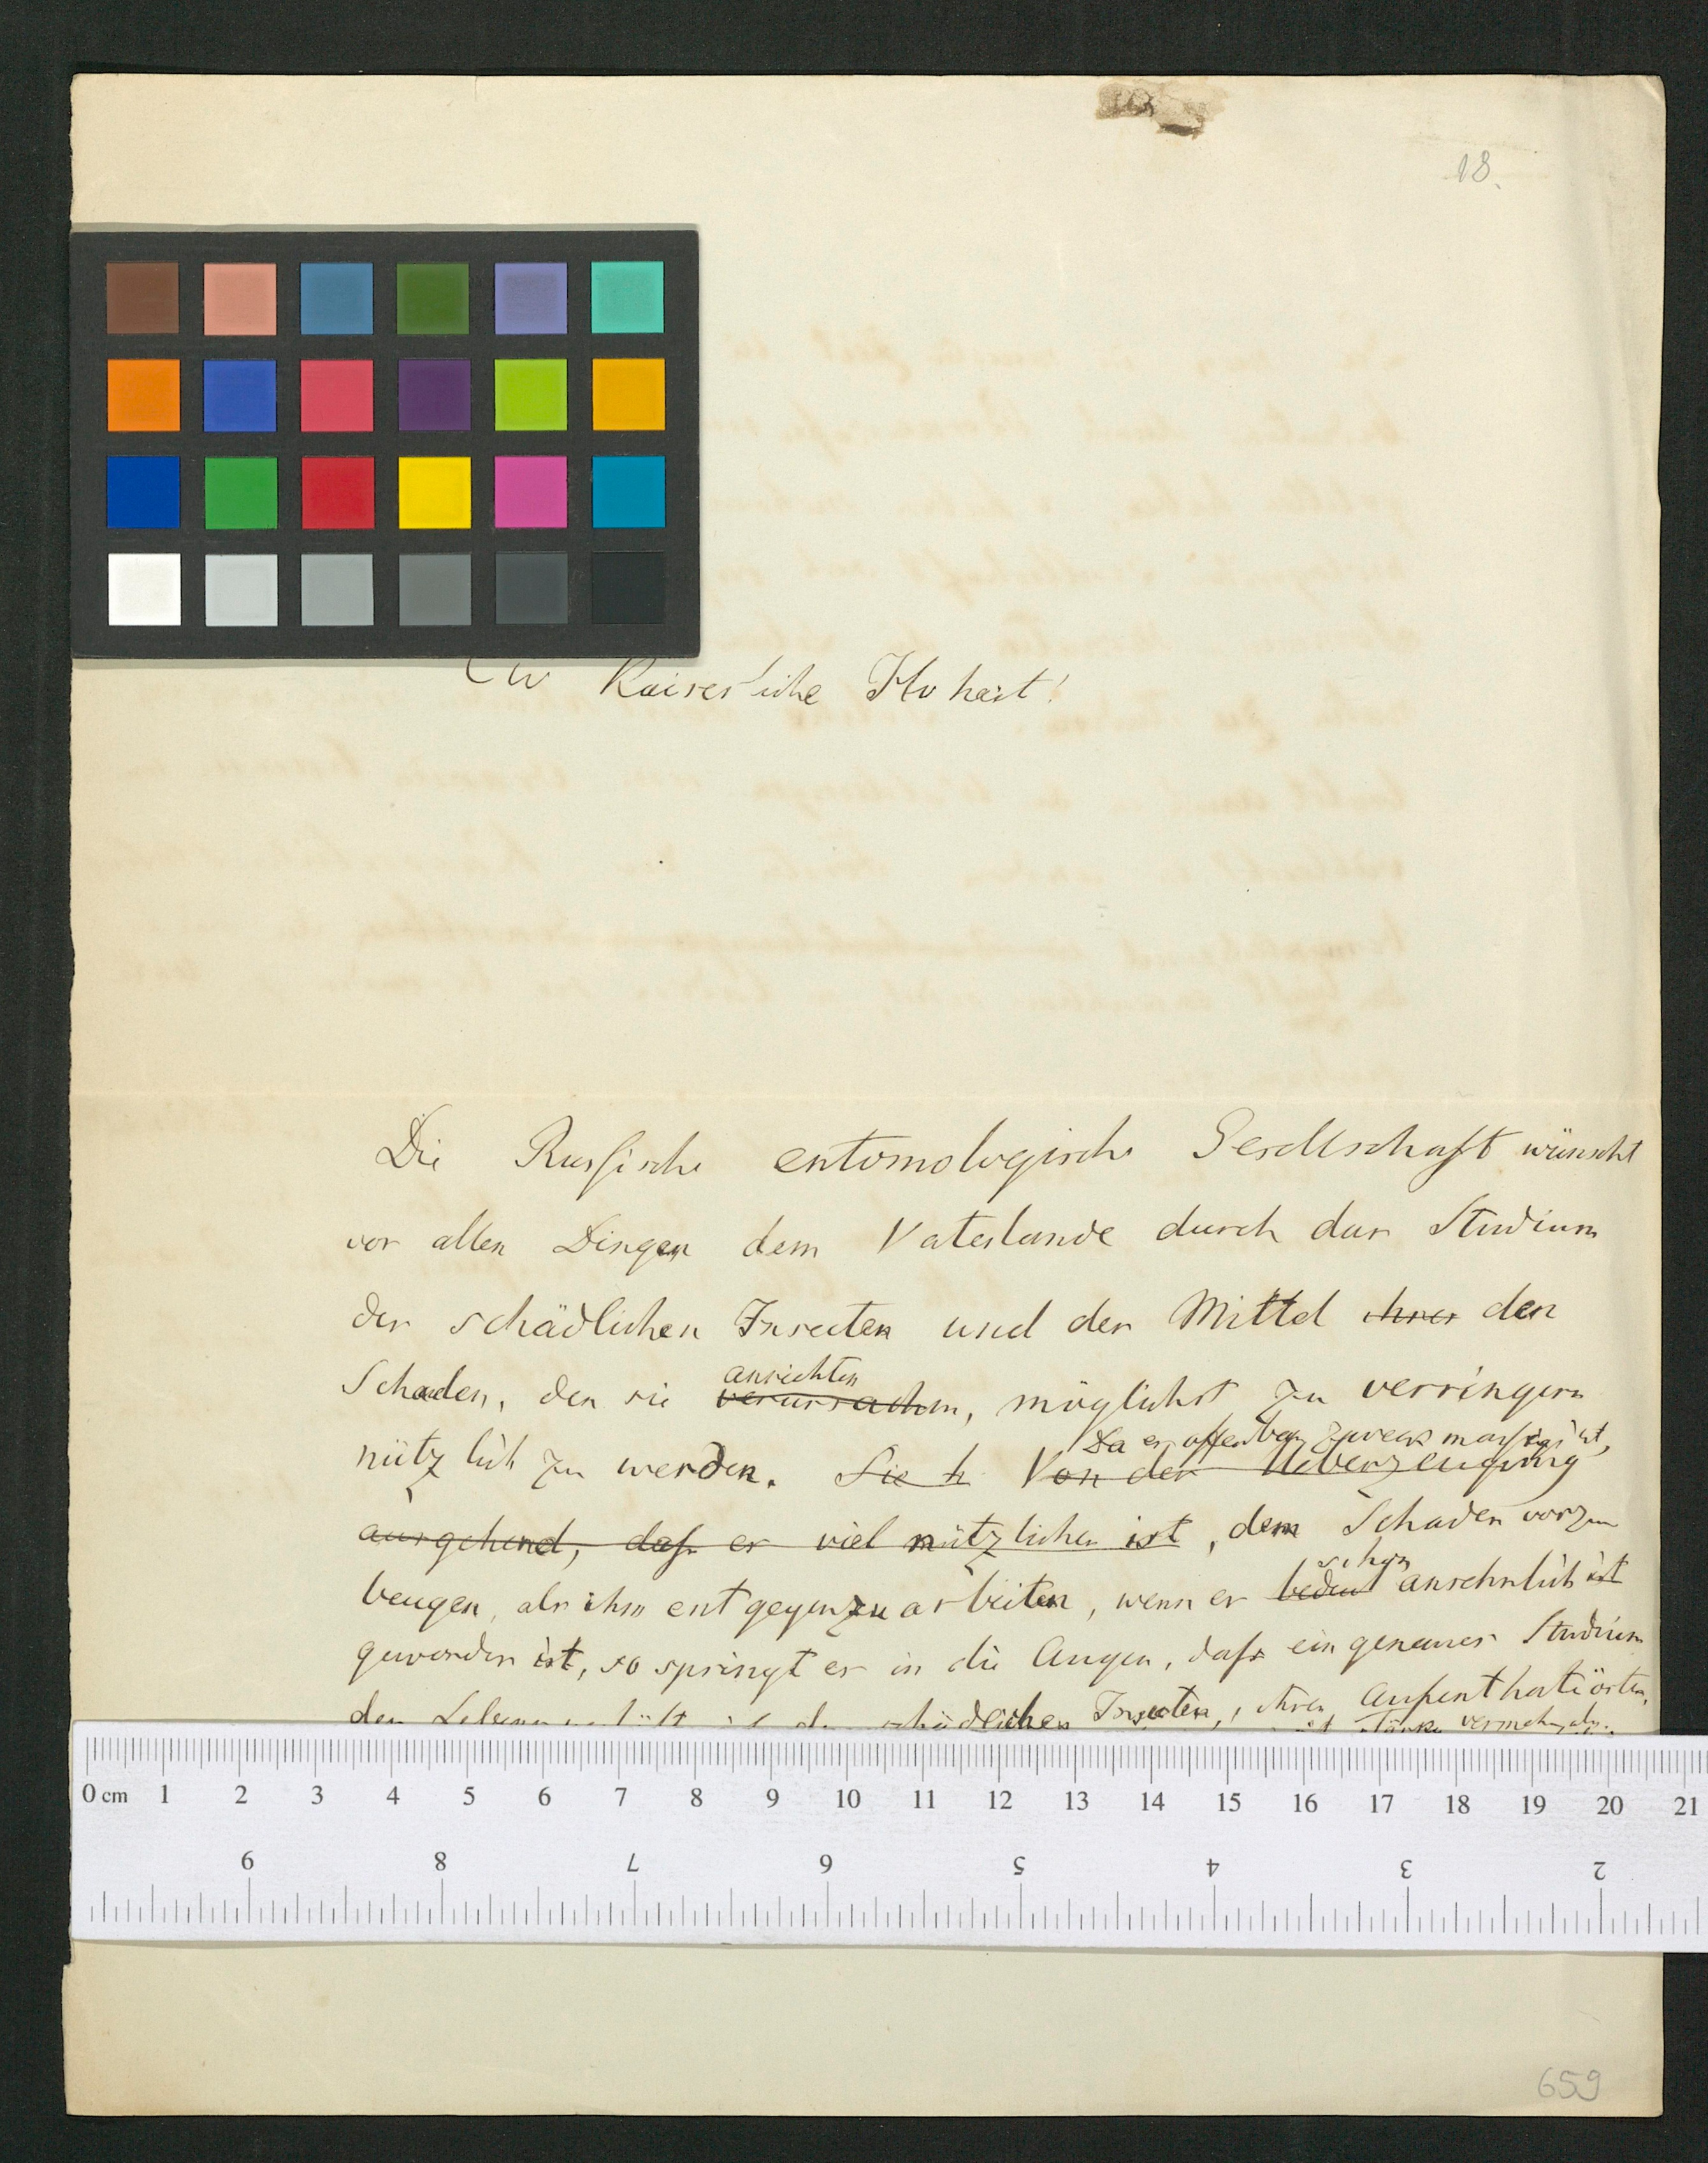 18.
Ew Kaiserliche Hoheit!
Die Russische entomologische Gesellschaft wünscht
vor allen Dingen dem Vaterlande durch das Studium
der schädlichen Insecten und der Mittel ihrer den
anrichten
Schaden, den sie verursachen, möglichst zu verringern
Da es offenbar zweckmassiger ist,
nützlich zu werden. Sie h Von der Ueberzeugung
ausgehend, dass es viel nützlicher ist, dem Schaden vorzu
schon
beugen, als ihm entgegenzuarbeiten, wenn er bedeut ansehnlich ist
geworden ist, so springt es in die Augen, dass ein genaues Studium
der schädlichen Insecten, ihren Aufenthaltsörten,
0 cm 1 2 3 4 5 6 7 8 9 10 11 12 13 14 15 16 17 18 19 20 21
9 8 7 6 5 4 3 2
659